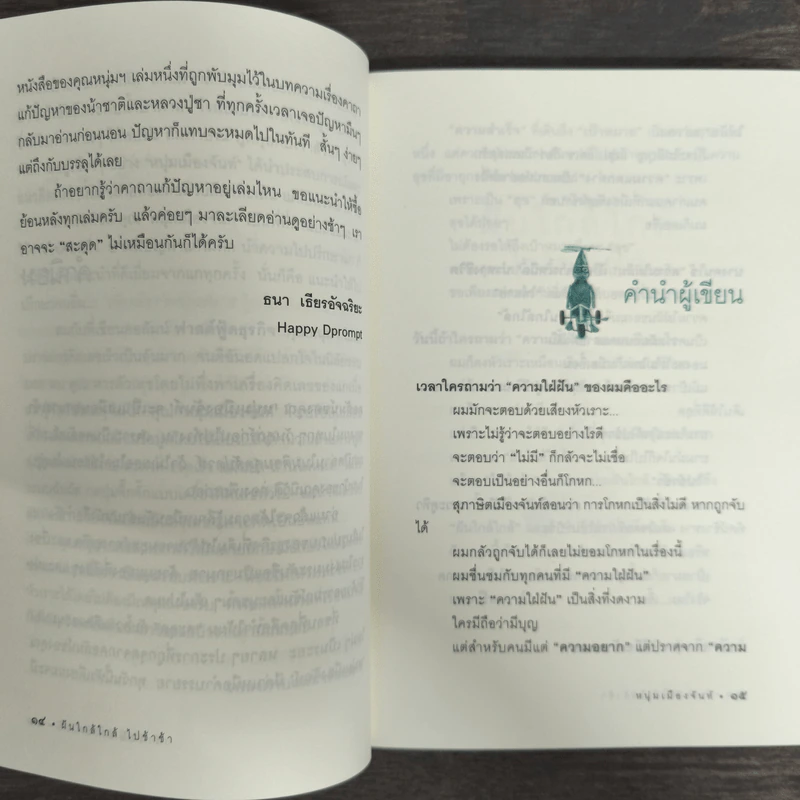 หนังสือของคุณหนุ่มฯ เล่มหนึ่งที่ถูกพับมุมไว้ในบทความเรื่องคาถา
แก้ปัญหาของน้าชาติและหลวงปู่ชา ที่ทุกครั้งเวลาเจอปัญหามึนๆ
กลับมาอ่านก่อนนอน ปัญหาก็แทบจะหมดไปในทันที สั้นๆ ง่ายๆ
แต่ถึงกับบรรลุได้เลย
ถ้าอยากรู้ว่าคาถาแก้ปัญหาอยู่เล่มไหน ขอแนะนำให้ซื้อ
ย้อนหลังทุกเล่มครับ แล้วค่อยๆ มาละเลียดอ่านดูอย่างช้าๆ เรา
อาจจะ “สะดุด” ไม่เหมือนกันก็ได้ครับ
ธนา เธียรอัจฉริยะ
Happy Dprompt
๑๔ • ฝันใกล้ใกล้ ไปช้าช้า
คำนำผู้เขียน
เวลาใครถามว่า “ความใฝ่ฝัน” ของผมคืออะไร
ผมมักจะตอบด้วยเสียงหัวเราะ...
เพราะไม่รู้ว่าจะตอบอย่างไรดี
จะตอบว่า “ไม่มี” ก็กลัวจะไม่เชื่อ
จะตอบเป็นอย่างอื่นก็โกหก...
สุภาษิตเมืองจันท์สอนว่า การโกหกเป็นสิ่งไม่ดี หากถูกจับ
ได้
ผมกลัวถูกจับได้ก็เลยไม่ยอมโกหกในเรื่องนี้
ผมชื่นชมกับทุกคนที่มี “ความใฝ่ฝัน”
เพราะ “ความใฝ่ฝัน” เป็นสิ่งที่งดงาม
ใครมีถือว่ามีบุญ
แต่สำหรับคนมีแต่ “ความอยาก” แต่ปราศจาก “ความ
หนุ่มเมืองจันท์ • ๑๕